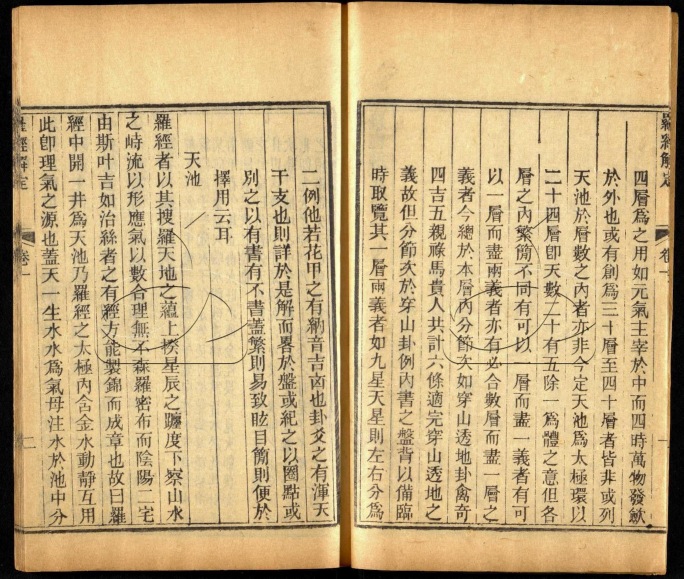 羅經解定
卷一
四層爲之用如元氣主宰於中而四時萬物發斂
於外也或有創爲三十層至四十層者皆非或列
天池於層數之內者亦非今定天池爲太極環以
二十四層卽天數二十有五除一爲體之意但各
層之內繁簡不同有可以一層而盡一義者有可
以一層而盡兩義者亦有必合數層而盡一層之
義者今總於本層內分節次如穿山透地卦禽奇
四吉五親祿馬貴人共計六條適完穿山透地之
義故但分節次於穿山卦例內書之盤背以備臨
時取覽其一層兩義者如九星天星則左右分爲
二例他若花甲之有納音吉凶也卦爻之有渾天
干支也則詳於是解而畧於盤或紀之以圈點或
別之以有書有不書蓋繁則易致眩目簡則便於
擇用云耳
天池
羅經者以其搜羅天地之蘊上揆星辰之躔度下察山水
之峙流以形應氣以數合理無不森羅密布而陰陽二宅
由斯叶吉如治絲者之有經方能製錦而成章也故曰羅
經中開一井爲天池乃羅經之太極內含金水動靜互用
此卽理氣之源也蓋天一生水水爲氣母注水於池中分
羅經解定
卷一
二